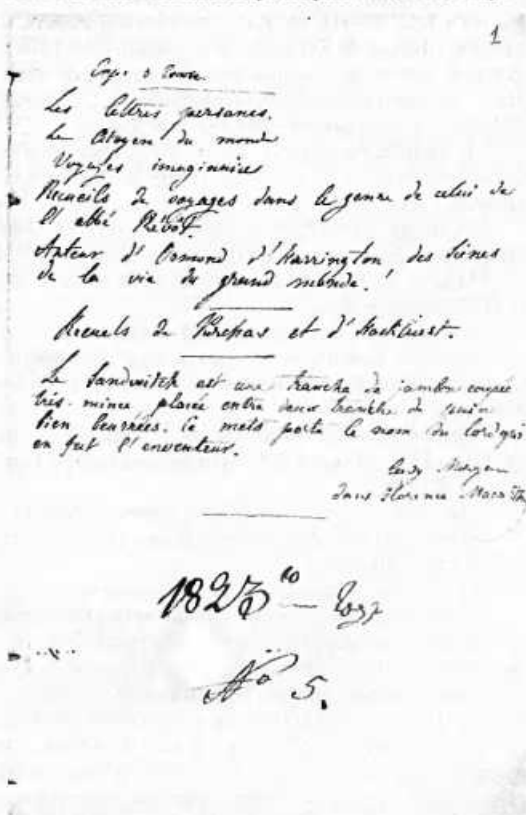 1
Les lettres persanes.
Le Citoyen du monde
Voyages imaginaires
Recueils de voyages dans le genre de celui de
l'abbé Prévôt.
Auteur d'Ormond d'Harrington des Scènes
de la vie du grand monde.
Recuels de Purchas et d'
Le Sandwitch est une tranche de jambon coupée
très-mince, placée entre deux tranche de
bien beurrées. Ce mets porte le nom du lord qui
en fut l'inventeur.
Lady Morgan
dans Florence
1823
No 5.